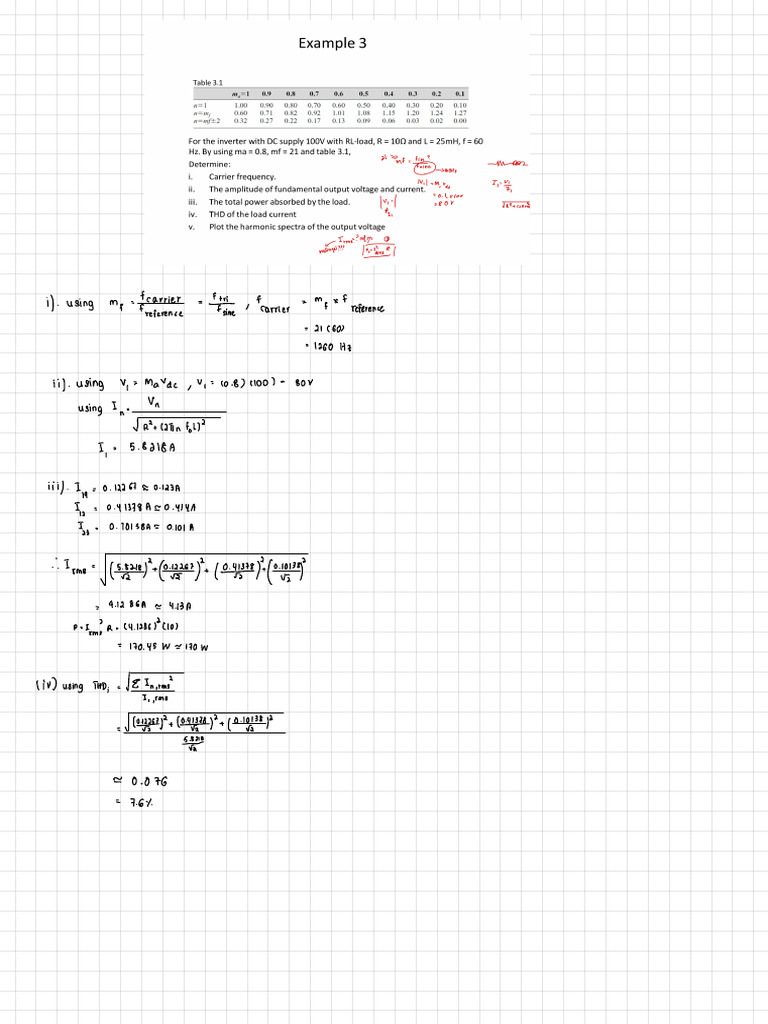 Example 3
Table 3.1
mₐ=1 0.9 0.8 0.7 0.6 0.5 0.4 0.3 0.2 0.1
n=1 1.00 0.90 0.80 0.70 0.60 0.50 0.40 0.30 0.20 0.10
n=m_f 0.60 0.71 0.82 0.92 1.01 1.08 1.15 1.20 1.24 1.27
n=mf±2 0.32 0.27 0.22 0.17 0.13 0.09 0.06 0.03 0.02 0.00
For the inverter with DC supply 100V with RL-load, R = 10Ω and L = 25mH, f = 60
Hz. By using ma = 0.8, mf = 21 and table 3.1,
Determine:
i. Carrier frequency.
ii. The amplitude of fundamental output voltage and current.
iii. The total power absorbed by the load.
iv. THD of the load current
v. Plot the harmonic spectra of the output voltage
|V₁| = Mₐ Vdc
= 80V
I₁ = V₁/Z₁
i). using m_f = f carrier / f reference = f tri / f sine , f carrier = m_f × f reference
= 21 (60)
= 1260 Hz
ii). using V₁ = Mₐ Vdc , V₁ = (0.8) (100) = 80V
using Iₙ = Vₙ / √(R² + (2πn f₀L)²)
I₁ = 5.8218A
iii). I₁₉ = 0.12267 ≃ 0.123A
= 0.41378 A ≃ 0.414A
I₂₃ = 0.10138A ≃ 0.101 A
∴ I rms = √((5.8218/√2)² + (0.12267/√2)² + (0.41378/√2)² + (0.10138/√2)²)
= 4.1286A ≃ 4.13A
P = I rms² R = (4.1286)² (10)
= 170.45 W ≃ 170 W
(iv) using THDᵢ = √(Σ Iₙ,rms²) / I₁,rms
= √((0.12267/√2)² + (0.41378/√2)² + (0.10138/√2)²) / (5.8218/√2)
≃ 0.076
= 7.6%